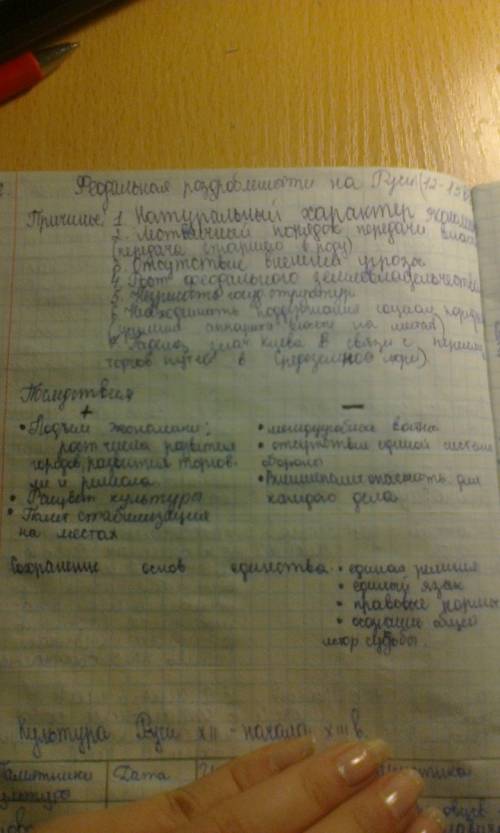 Феодальная раздробленность на Руси (12-13
Причины: 1 Натуральный характер эконом
2. Лествичный порядок передачи власт
(передача старшего в роду)
3 Отсутствие внешней угрозы
4. Рост феодального землевладельчества
5.
6 Необходимость поддержания социал. порядка
(усиления аппарата власти на местах)
7. Падение знач Киева в связи с перемещ.
торгов путей в Средиземное море).
Последствия
+
–
• Подъем экономики:
рост числа развития
городов, развития торгов-
ли и ремесла
• Расцвет культуры
• Полит стабилизация
на местах
• междоусобные войны
• отсутствие единой системы
обороны
каждого
Сохранение основ единства:
• единая религия
• единый язык
• правовые нормы
• осознание общей
истор судьбы.
Культура Руси XII - начало XIII в.
Памятники
культуры
Дата